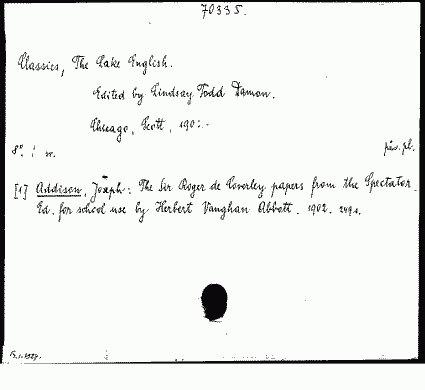 70335.
Classics, The Lake English.
Edited by Lindsay Todd Damon.
Chicago, Scott, 190:-
8º. : n. päv. pl.
[1] Addison, Joseph: The Sir Roger de Coverley papers from the Spectator.
Ed. for school use by Herbert Vaughan Abbott. 1902. 249 s.